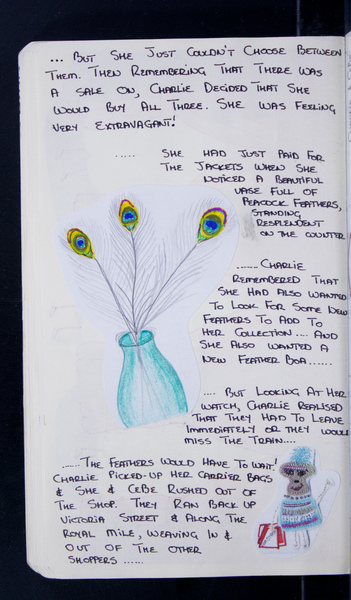 ... But She Just Couldn't Choose Between
Them. Then Remembering That There Was
A Sale On, Charlie Decided That She
Would Buy All Three. She Was Feeling
Very Extravagant!
..... She Had Just Paid For
The Jackets When She
Noticed A Beautiful
Vase Full Of
Peacock Feathers,
Standing
Resplendent
On The Counter
...... Charlie
Remembered That
She Had Also Wanted
To Look For Some New
Feathers To Add To
Her Collection .... And
She Also Wanted A
New Feather Boa ......
.... But Looking At Her
Watch, Charlie Realised
That They Had To Leave
Immediately Or They Would
Miss The Train....
...... The Feathers Would Have To Wait!
Charlie Picked-Up Her Carrier Bags
& She & CeBe Rushed Out Of
The Shop. They Ran Back Up
Victoria Street & Along The
Royal Mile, Weaving In &
Out Of The Other
Shoppers ......